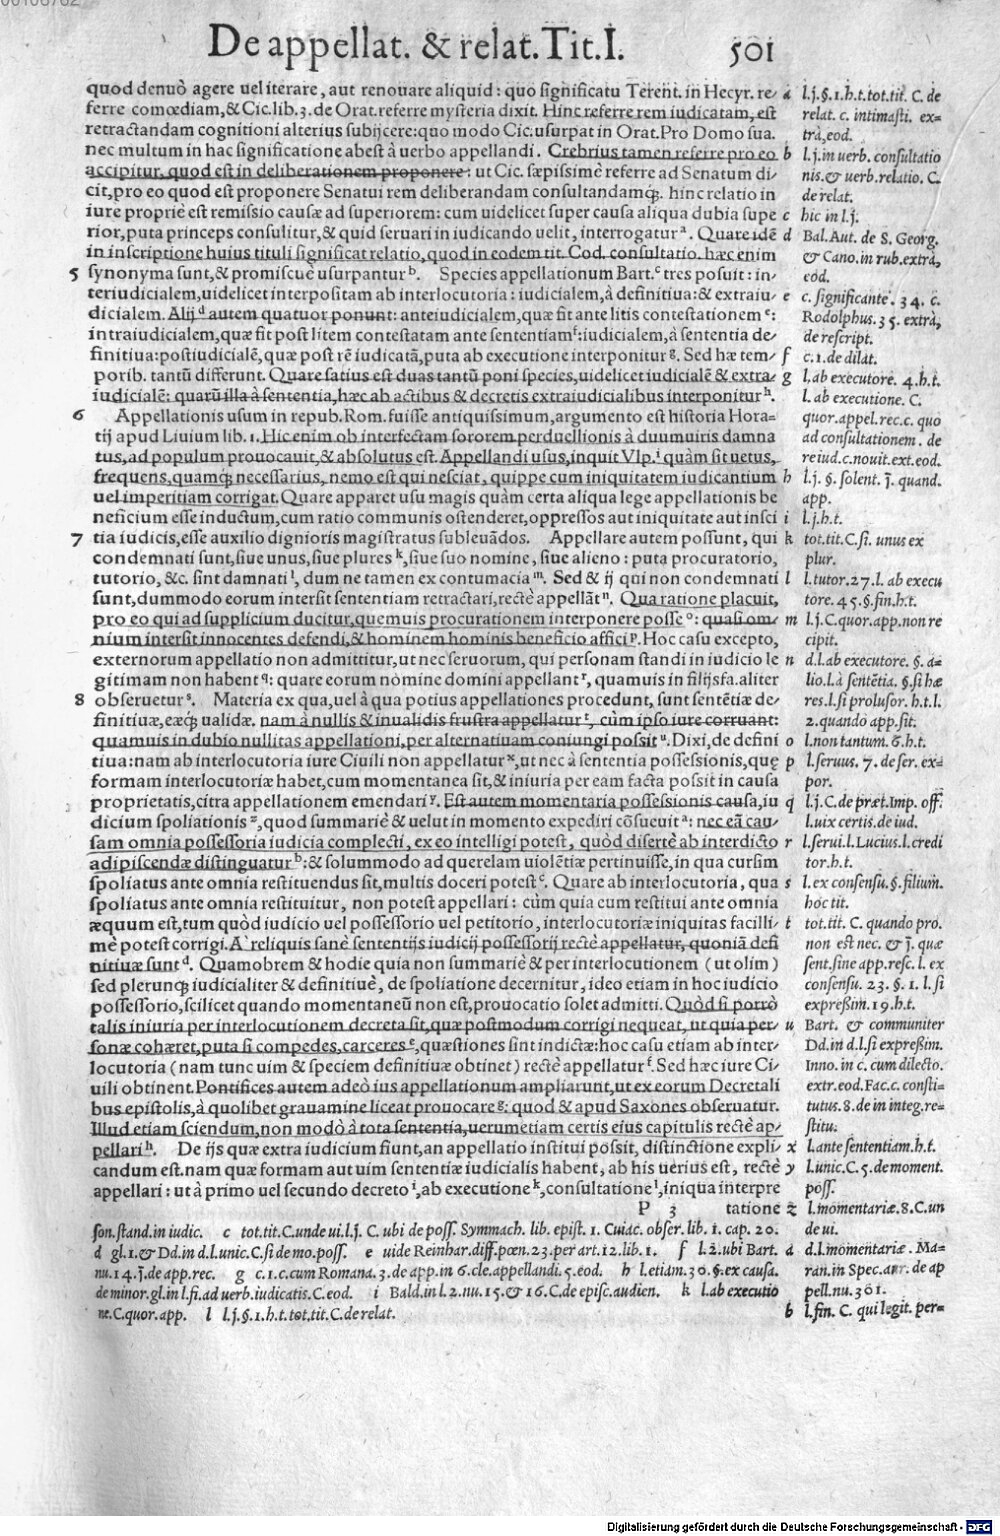 De appellat. & relat. Tit. I. 501
quod denuò agere uel iterare, aut renouare aliquid: quo significatu Terent. in Hecyr. re-
ferre comœdiam, & Cic. lib. 3. de Orat. referre mysteria dixit. Hinc referre rem iudicatam, est
retractandam cognitioni alterius subijcere: quo modo Cic. usurpat in Orat. Pro Domo sua.
nec multum in hac significatione abest à uerbo appellandi. Crebrius tamen referre pro eo
accipitur, quod est in deliberationem proponere: ut Cic. sæpissimè referre ad Senatum di-
cit, pro eo quod est proponere Senatui rem deliberandam consultandamq́;. hinc relatio in
iure propriè est remissio causæ ad superiorem: cum uidelicet super causa aliqua dubia supe
rior, puta princeps consulitur, & quid seruari in iudicando uelit, interrogatur a. Quare idē
in inscriptione huius tituli significat relatio, quod in eodem tit. Cod. consultatio. hæc enim
5 synonyma sunt, & promiscuè usurpantur b. Species appellationum Bart. c tres posuit: in-
teriudicialem, uidelicet interpositam ab interlocutoria: iudicialem, à definitiua: & extraiu-
dicialem. Alij d autem quatuor ponunt: anteiudicialem, quæ fit ante litis contestationem e:
intraiudicialem, quæ fit post litem contestatam ante sententiam f: iudicialem, à sententia de-
finitiua: postiudicialē, quæ post rē iudicatā, puta ab executione interponitur g. Sed hæ tem-
porib. tantū differunt. Quare satius est duas tantū poni species, uidelicet iudicialē & extra-
iudicialē: quarū illa à sententia, hæc ab actibus & decretis extraiudicialibus interponitur h.
6 Appellationis usum in repub. Rom. fuisse antiquissimum, argumento est historia Hora-
tij apud Liuium lib. 1. Hic enim ob interfectam sororem perduellionis à duumuiris damna
tus, ad populum prouocauit, & absolutus est. Appellandi usus, inquit Vlp. i quàm sit uetus,
frequens, quamq́; necessarius, nemo est qui nesciat, quippe cum iniquitatem iudicantium
uel imperitiam corrigat. Quare apparet usu magis quàm certa aliqua lege appellationis be
neficium esse inductum, cum ratio communis ostenderet, oppressos aut iniquitate aut insci
7 tia iudicis, esse auxilio dignioris magistratus subleuādos. Appellare autem possunt, qui
condemnati sunt, siue unus, siue plures k, siue suo nomine, siue alieno: puta procuratorio,
tutorio, &c. sint damnati l, dum ne tamen ex contumacia m. Sed & ij qui non condemnati
sunt, dummodo eorum intersit sententiam retractari, rectè appellāt n. Qua ratione placuit,
pro eo qui ad supplicium ducitur, quemuis procurationem interponere posse o: quasi om-
nium intersit innocentes defendi, & hominem hominis beneficio affici p. Hoc casu excepto,
externorum appellatio non admittitur, ut nec seruorum, qui personam standi in iudicio le
gitimam non habent q: quare eorum nomine domini appellant r, quamuis in filijsfa. aliter
8 obseruetur s. Materia ex qua, uel à qua potius appellationes procedunt, sunt sentētiæ de-
finitiuæ, eæq́; ualidæ. nam à nullis & inualidis frustra appellatur t, cùm ipso iure corruant:
quamuis in dubio nullitas appellationi, per alternatiuam coniungi possit u. Dixi, de defini
tiua: nam ab interlocutoria iure Ciuili non appellatur x, ut nec à sententia possessionis, quę
formam interlocutoriæ habet, cum momentanea sit, & iniuria per eam facta possit in causa
proprietatis, citra appellationem emendari y. Est autem momentaria possessionis causa, iu
dicium spoliationis z, quod summariè & uelut in momento expediri cōsueuit a: nec eā cau-
sam omnia possessoria iudicia complecti, ex eo intelligi potest, quòd disertè ab interdicto
adipiscendæ distinguatur b: & solummodo ad querelam uiolētiæ pertinuisse, in qua cursim
spoliatus ante omnia restituendus sit, multis doceri potest c. Quare ab interlocutoria, qua
spoliatus ante omnia restituitur, non potest appellari: cùm quia cum restitui ante omnia
æquum est, tum quòd iudicio uel possessorio uel petitorio, interlocutoriæ iniquitas facilli-
mè potest corrigi. A` reliquis sanè sententijs iudicij possessorij rectè appellatur, quoniā defi
nitiuæ sunt d. Quamobrem & hodie quia non summariè & per interlocutionem (ut olim)
sed plerunq; iudicialiter & definitiuè, de spoliatione decernitur, ideo etiam in hoc iudicio
possessorio, scilicet quando momentaneū non est, prouocatio solet admitti. Quòd si porrò
talis iniuria per interlocutionem decreta sit, quæ postmodum corrigi nequeat, ut quia per-
sonæ cohæret, puta si compedes, carceres e, quæstiones sint indictæ: hoc casu etiam ab inter-
locutoria (nam tunc uim & speciem definitiuæ obtinet) rectè appellatur f. Sed hæc iure Ci-
uili obtinent. Pontifices autem adeò ius appellationum ampliarunt, ut ex eorum Decretali
bus epistolis, à quolibet grauamine liceat prouocare g: quod & apud Saxones obseruatur.
Illud etiam sciendum, non modò à tota sententia, uerumetiam certis eius capitulis rectè ap-
pellari h. De ijs quæ extra iudicium fiunt, an appellatio institui possit, distinctione expli-
candum est. nam quæ formam aut uim sententiæ iudicialis habent, ab his uerius est, rectè
appellari: ut à primo uel secundo decreto i, ab executione k, consultatione l, iniqua interpre
P 3 tatione
a l. j. §. 1. h. t. tot. tit. C. de
relat. c. intimasti. ex-
trà, eod.
b l. j. in uerb. consultatio
nis. & uerb. relatio. C.
de relat.
c hic in l. j.
d Bal. Aut. de S. Georg.
& Cano. in rub. extrà,
eod.
e c. significante. 34. c.
Rodolphus. 35. extrà,
de rescript.
f c. 1. de dilat.
g l. ab executore. 4. h. t.
l. ab executione. C.
quor. appel. rec. c. quo
ad consultationem. de
re iud. c. nouit. ext. eod.
h l. j. §. solent. j. quand.
app.
i l. j. h. t.
k tot. tit. C. si. unus ex
plur.
l l. tutor. 27. l. ab execu
tore. 45. §. fin. h. t.
m l. j. C. quor. app. non re
cipit.
n d. l. ab executore. §. a-
lio. l. à sentētia. §. si hæ
res. l. si prolusor. h. t. l.
2. quando app. sit.
o l. non tantum. 6. h. t.
p l. seruus. 7. de ser. ex-
por.
q l. j. C. de præt. Imp. off.
l. uix certis. de iud.
r l. serui. l. Lucius. l. credi
tor. h. t.
s l. ex consensu. §. filium.
hoc tit.
t tot. tit. C. quando pro.
non est nec. & j. quæ
sent. sine app. resc. l. ex
consensu. 23. §. 1. l. si
expreßim. 19. h. t.
u Bart. & communiter
Dd. in d. l. si expreßim.
Inno. in c. cum dilecto.
extr. eod. Fac. c. consti-
tutus. 8. de in integ. re-
stitu.
x l. ante sententiam. h. t.
y l. unic. C. 5. de moment.
poss.
z l. momentariæ. 8. C. un
de ui.
a d. l. momentariæ. Ma-
ran. in Spec. aur. de ap
pell. nu. 301.
b l. fin. C. qui legit. per-
son. stand. in iudic. c tot. tit. C. unde ui. l. j. C. ubi de poss. Symmach. lib. epist. 1. Cuiac. obser. lib. 1. cap. 20.
d gl. 1. & Dd. in d. l. unic. C. si de mo. poss. e uide Reinhar. diff. pœn. 23. per art. 12. lib. 1. f l. 2. ubi Bart.
nu. 14. j. de app. rec. g c. 1. c. cum Romana. 3. de app. in 6. cle. appellandi. 5. eod. h l. etiam. 30. §. ex causa.
de minor. gl. in l. fi. ad uerb. iudicatis. C. eod. i Bald. in l. 2. nu. 15. & 16. C. de episc. audien. k l. ab executio
ne. C. quor. app. l l. j. §. 1. h. t. tot. tit. C. de relat.
Digitalisierung gefördert durch die Deutsche Forschungsgemeinschaft - DFG